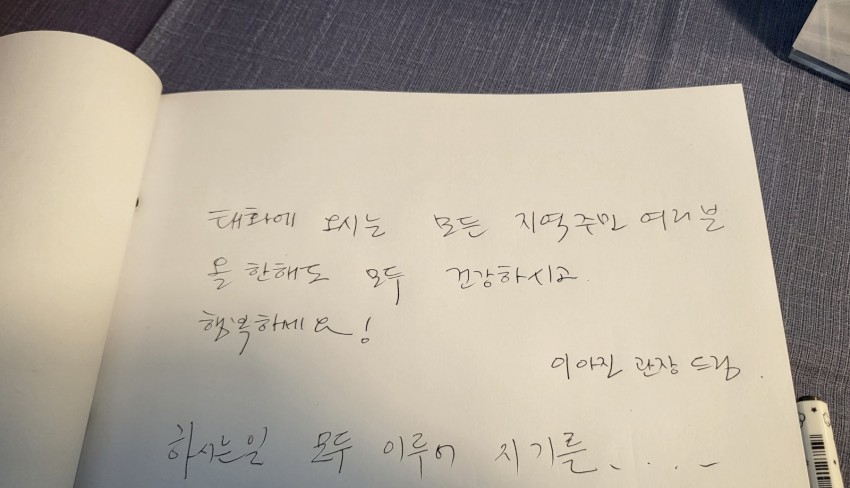 태화에 오시는 모든 지역주민 여러분
올 한해도 모두 건강하시고
행복하세요!
이아진 관장 드림.
하시는일 모두 이루어 지기를....